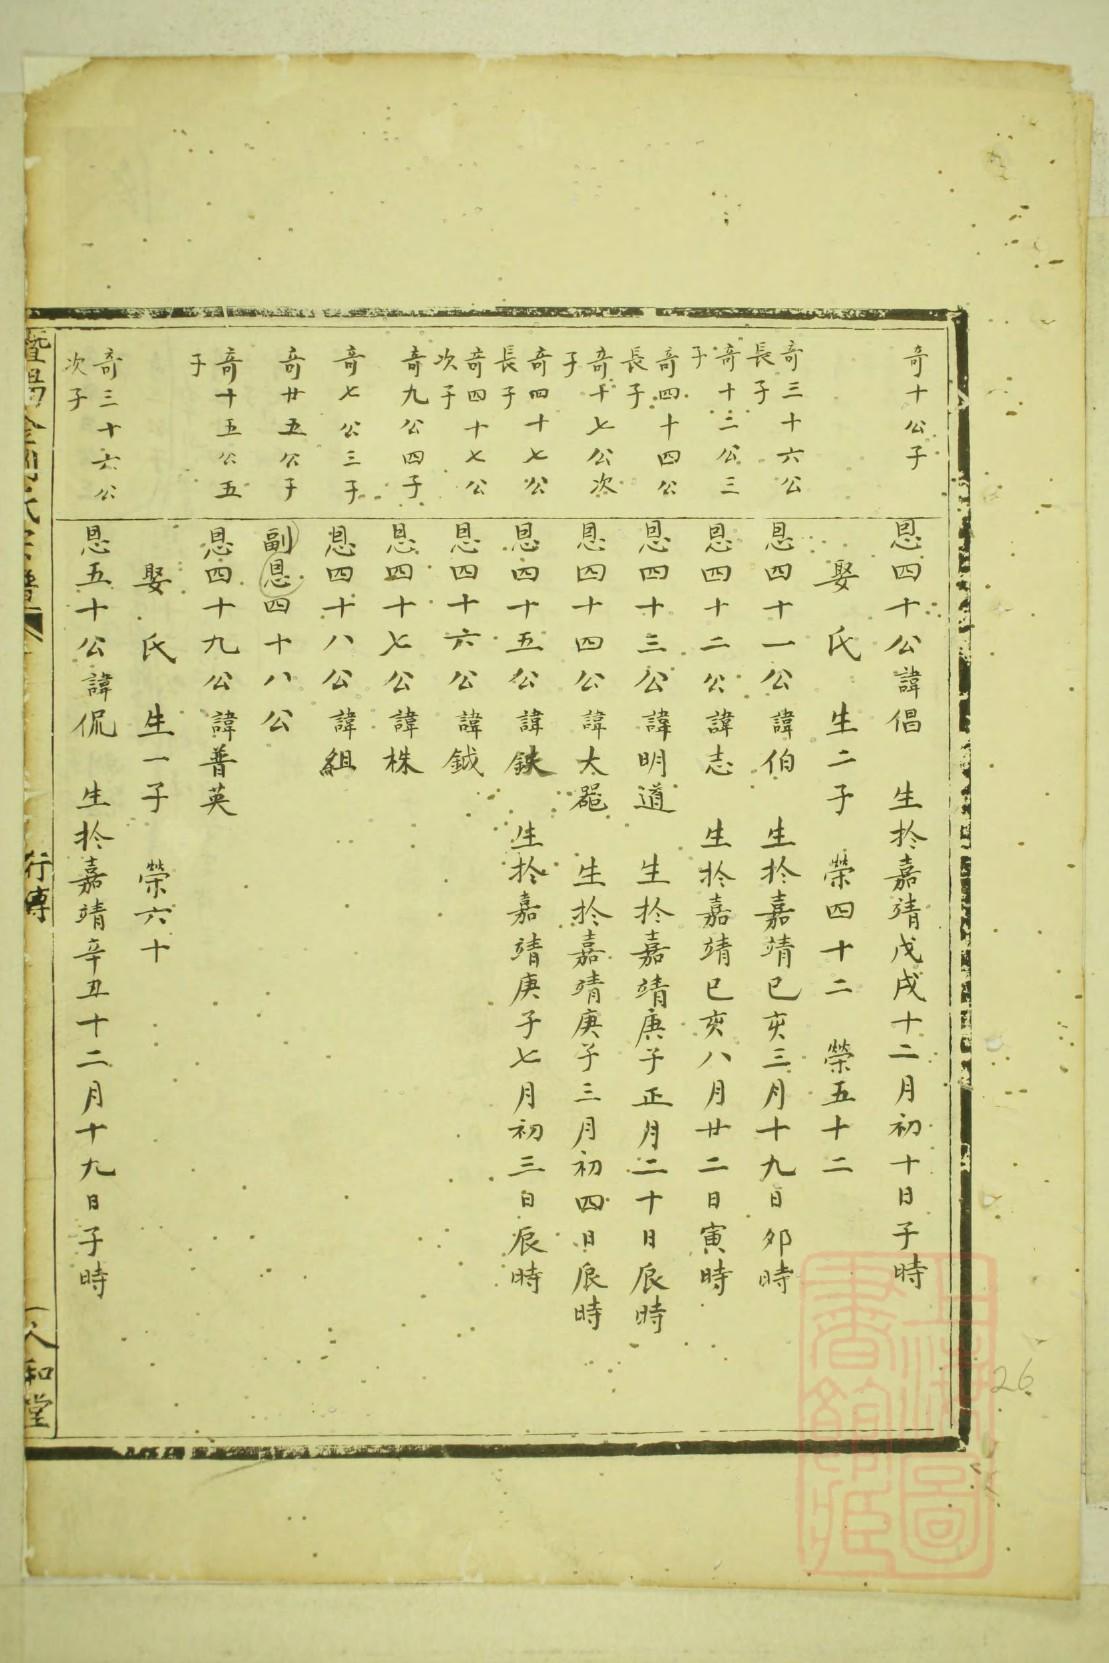 奇十公子
恩四十公諱倡 生於嘉靖戊戌十二月初十日子時
娶 氏 生二子 榮四十二 榮五十二
奇三十六公長子
恩四十一公諱伯 生於嘉靖己亥三月十九日卯時
奇十三公三子
恩四十二公諱志 生於嘉靖己亥八月廿二日寅時
奇四十四公長子
恩四十三公諱明道 生於嘉靖庚子正月二十日辰時
奇十七公次子
恩四十四公諱大 生於嘉靖庚子三月初四日辰時
奇四十七公長子
恩四十五公諱鉄 生於嘉靖庚子七月初三日辰時
奇四十七公次子
恩四十六公諱鉞
奇九公四子
恩四十七公諱株
奇七公三子
恩四十八公諱組
奇廿五公子
副恩四十八公
奇十五公五子
恩四十九公諱普英
娶 氏 生一子 榮六十
奇三十六公次子
恩五十公諱侃 生於嘉靖辛丑十二月十九日子時
暨陽 氏宗譜
行傳
人和堂
上海圖書館藏
26